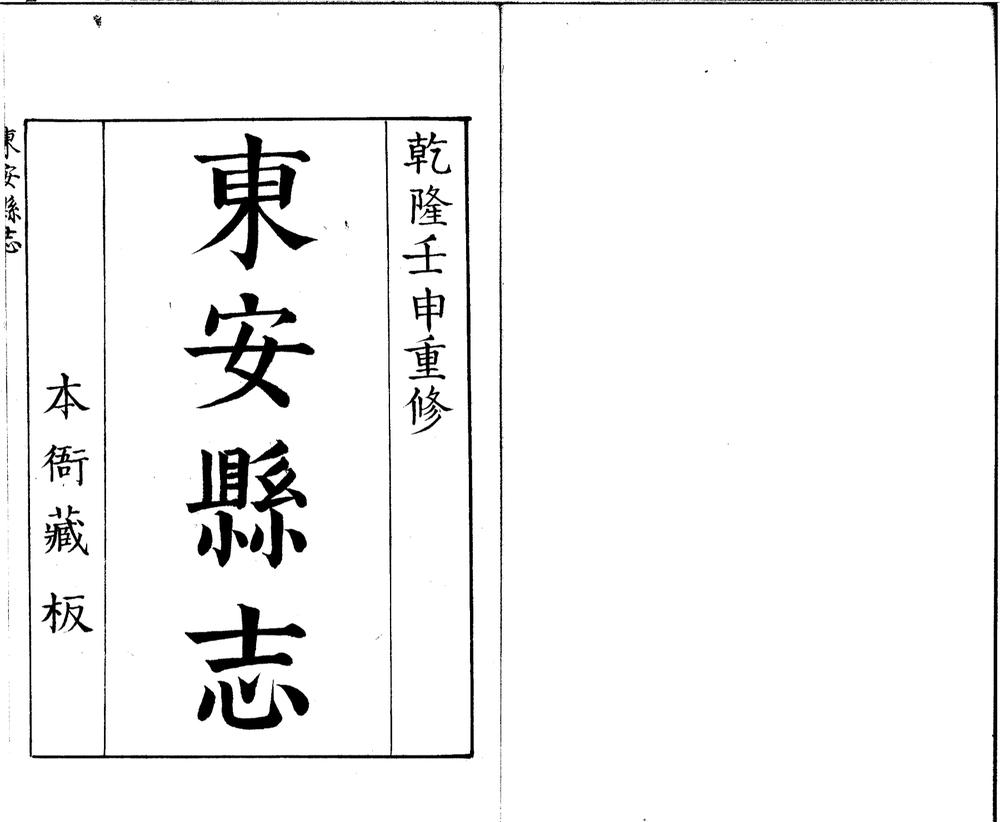 乾隆壬申重修
東安縣志
本衙藏板
東安縣志